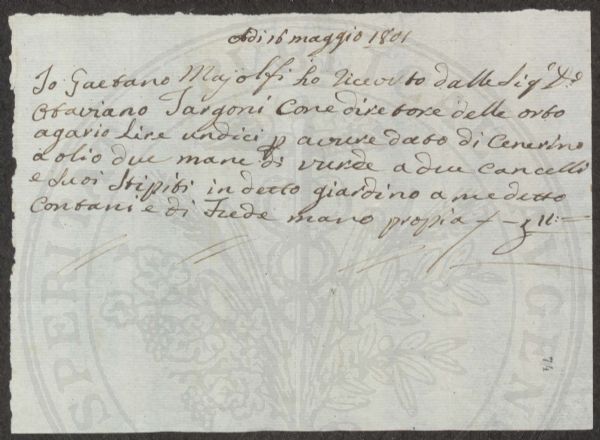 Adi 16 maggio 1801
Io Gaetano Majolfi ho riceuto dalle Sigr Dr
Otaviano Targoni Come diretore delle orto
agario Lire undici p avere dato di Cenerino
a olio due mane di verde a due Cancelli
e Suoi Stipiti in detto giardino a me detto
Contani e di Fede mano propia £ 11:
74
SPERI
AGEN